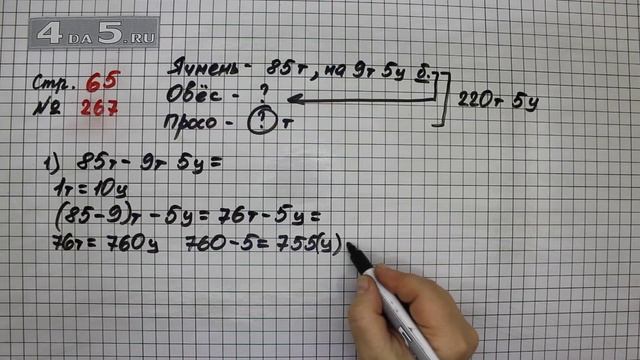 4DA5.RU
Стр. 65
№ 267
Ячмень - 85т, на 9т 5ц б.
Овёс - ?
Просо - ? т
220т 5ц
1) 85т - 9т 5ц =
1т = 10ц
(85-9)т - 5ц = 76т - 5ц =
76т = 760ц 760-5 = 755(ц)